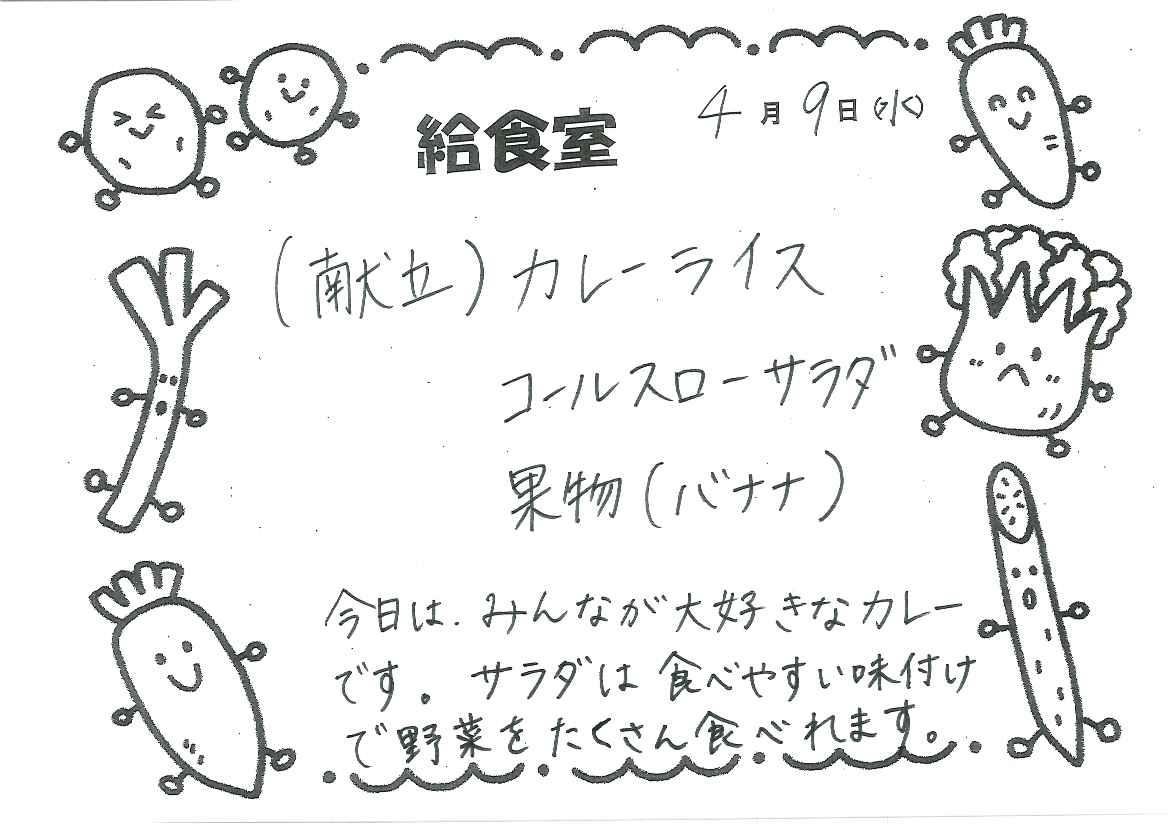 給食室 4月9日(水)
(献立)カレーライス
コールスローサラダ
果物(バナナ)
今日は、みんなが大好きなカレー
です。サラダは食べやすい味付け
で野菜をたくさん食べれます。